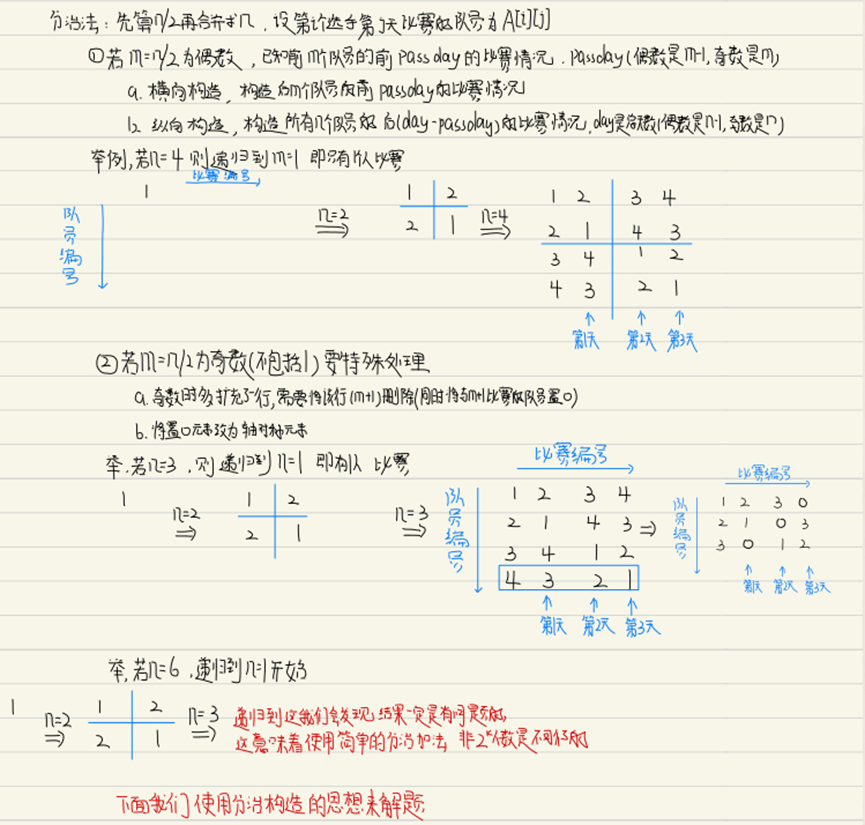 分治法: 先算n/2再合并求n, 设第i选手第j天比赛的队员为A[i][j]
①若m=n/2为偶数, 已知前m个队员的前passday的比赛情况. passday(偶数是m-1,奇数是m)
a. 横向构造, 构造后m个队员的前passday的比赛情况
b. 纵向构造, 构造所有n个队员的后(day-passday)的比赛情况, day是总天数(偶数是n-1,奇数是n)
举例,若n=4则递归到m=1即只有1人比赛
比赛编号
队员编号
1
n=2
1 2
2 1
n=4
1 2 3 4
2 1 4 3
3 4 1 2
4 3 2 1
第1天 第2天 第3天
②若m=n/2为奇数(不包括1)要特殊处理
a.奇数时多扩充了一行,需要将该行(m+1)删除(同时将与m+1比赛的队员置0)
b.将置0元素改为轴对称元素
举.若n=3,则递归到n=1即有1人比赛
1
n=2
1 2
2 1
n=3
比赛编号
队员编号
1 2 3 4
2 1 4 3
3 4 1 2
4 3 2 1
第1天 第2天 第3天
比赛编号
队员编号
1 2 3 0
2 1 0 3
3 0 1 2
第1天 第2天 第3天
举,若n=6,递归到n=1开始
1
n=2
1 2
2 1
n=3
递归到这我们会发现结果一定是有问题的,
这意味着使用简单的分治加法 非2^k人数是不行的
下面我们使用分治构造的思想来解题